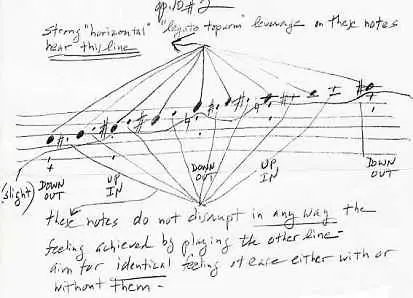 op. 10 # 2
Strong "horizontal" "legato toparm" leverage on these notes
hear this line
(slight) DOWN OUT UP IN DOWN OUT UP IN DOWN OUT
these notes do not disrupt in any way the
feeling achieved by playing the other line -
aim for identical feeling of ease either with or
without them -